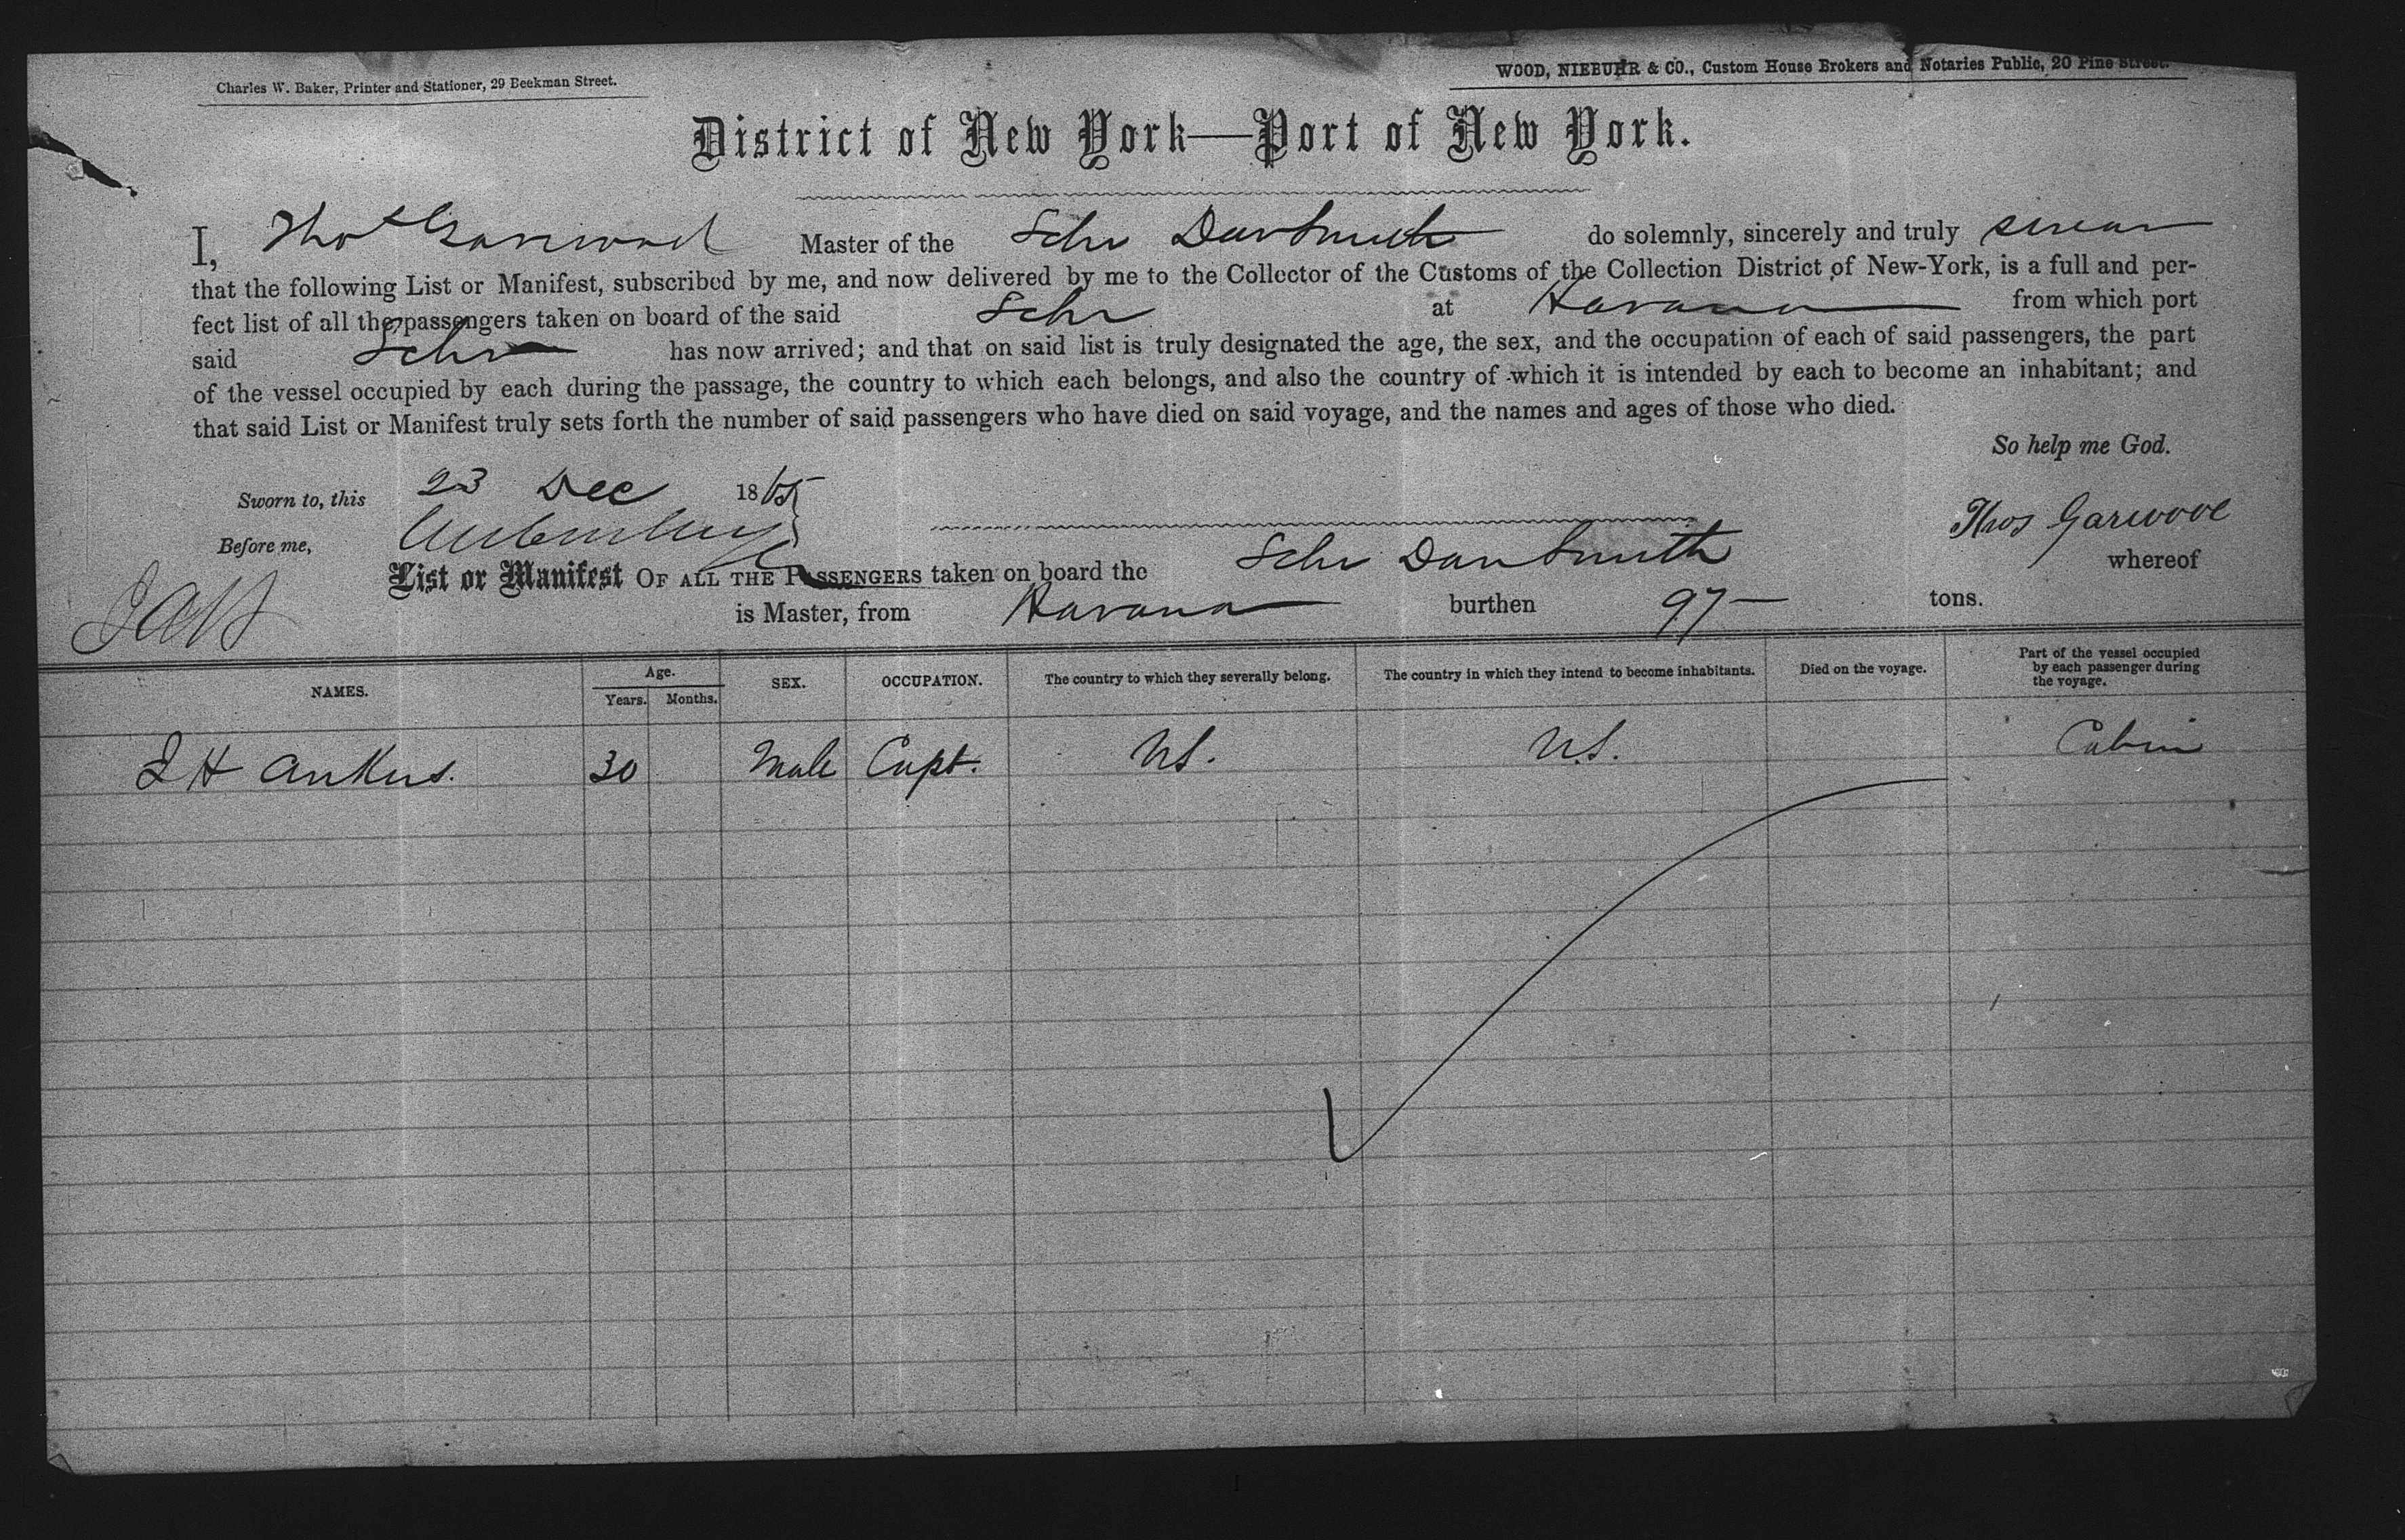 Charles W. Baker, Printer and Stationer, 29 Beekman Street.
WOOD, NIEBUHR & CO., Custom House Brokers and Notaries Public, 20 Pine Street.
District of New York—Port of New York.
I, Thos Garwood Master of the Schr Dan Smith do solemnly, sincerely and truly swear
that the following List or Manifest, subscribed by me, and now delivered by me to the Collector of the Customs of the Collection District of New-York, is a full and per-
fect list of all the passengers taken on board of the said Schr at Havana from which port
said Schr has now arrived; and that on said list is truly designated the age, the sex, and the occupation of each of said passengers, the part
of the vessel occupied by each during the passage, the country to which each belongs, and also the country of which it is intended by each to become an inhabitant; and
that said List or Manifest truly sets forth the number of said passengers who have died on said voyage, and the names and ages of those who died.
So help me God.
Sworn to, this 23 Dec 1865
Before me,
Thos Garwood
List or Manifest OF ALL THE PASSENGERS taken on board the Schr Dan Smith whereof
is Master, from Havana burthen 97 tons.
NAMES. Age. Years. Months. SEX. OCCUPATION. The country to which they severally belong. The country in which they intend to become inhabitants. Died on the voyage. Part of the vessel occupied by each passenger during the voyage.
J H Ankers. 30 Male Capt. US. U.S. Cabin